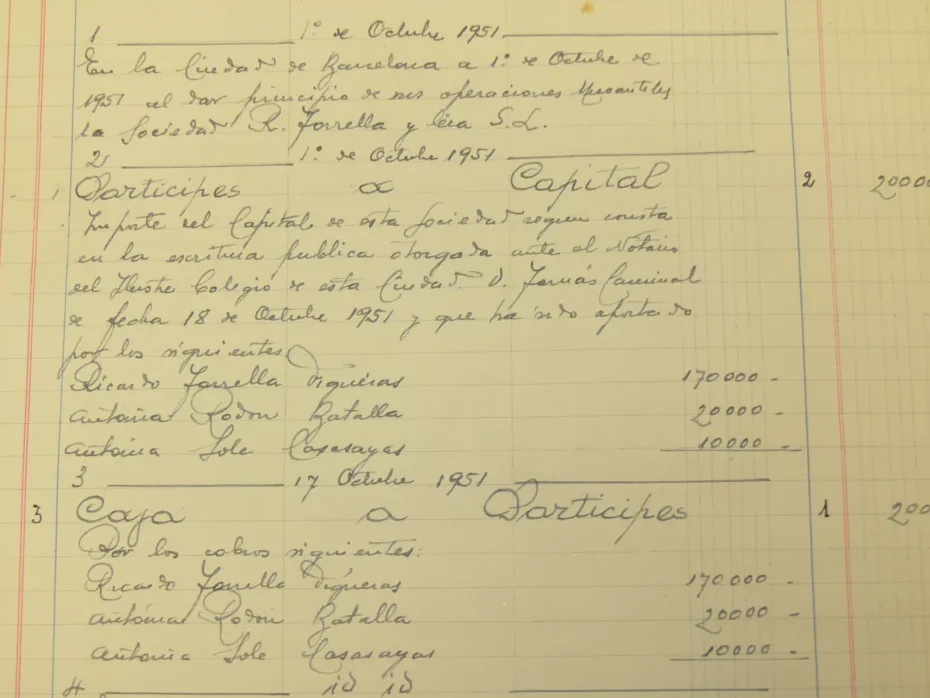 1 1º de Octubre 1951
En la Ciudad de Barcelona a 1º de Octubre de
1951 al dar principio de sus operaciones Mercantiles
la Sociedad R. Torrella y Cia S.L.
2 1º de Octubre 1951
1 Participes a Capital 2 20000
Importe del Capital de esta Sociedad segun consta
en la escritura publica otorgada ante el Notario
del Ilustre Colegio de esta Ciudad D. Tomás Caminal
de fecha 18 de Octubre 1951 y que ha sido aportado
por los siguientes
Ricardo Torrella Vigueras 170000 -
Antonia Rodon Batalla 20000 -
Antonia Sole Casasayas 10000 -
3 17 Octubre 1951
3 Caja a Participes 1 200
Por los cobros siguientes:
Ricardo Torrella Vigueras 170000 -
Antonia Rodon Batalla 20000 -
Antonia Sole Casasayas 10000 -
4 id id